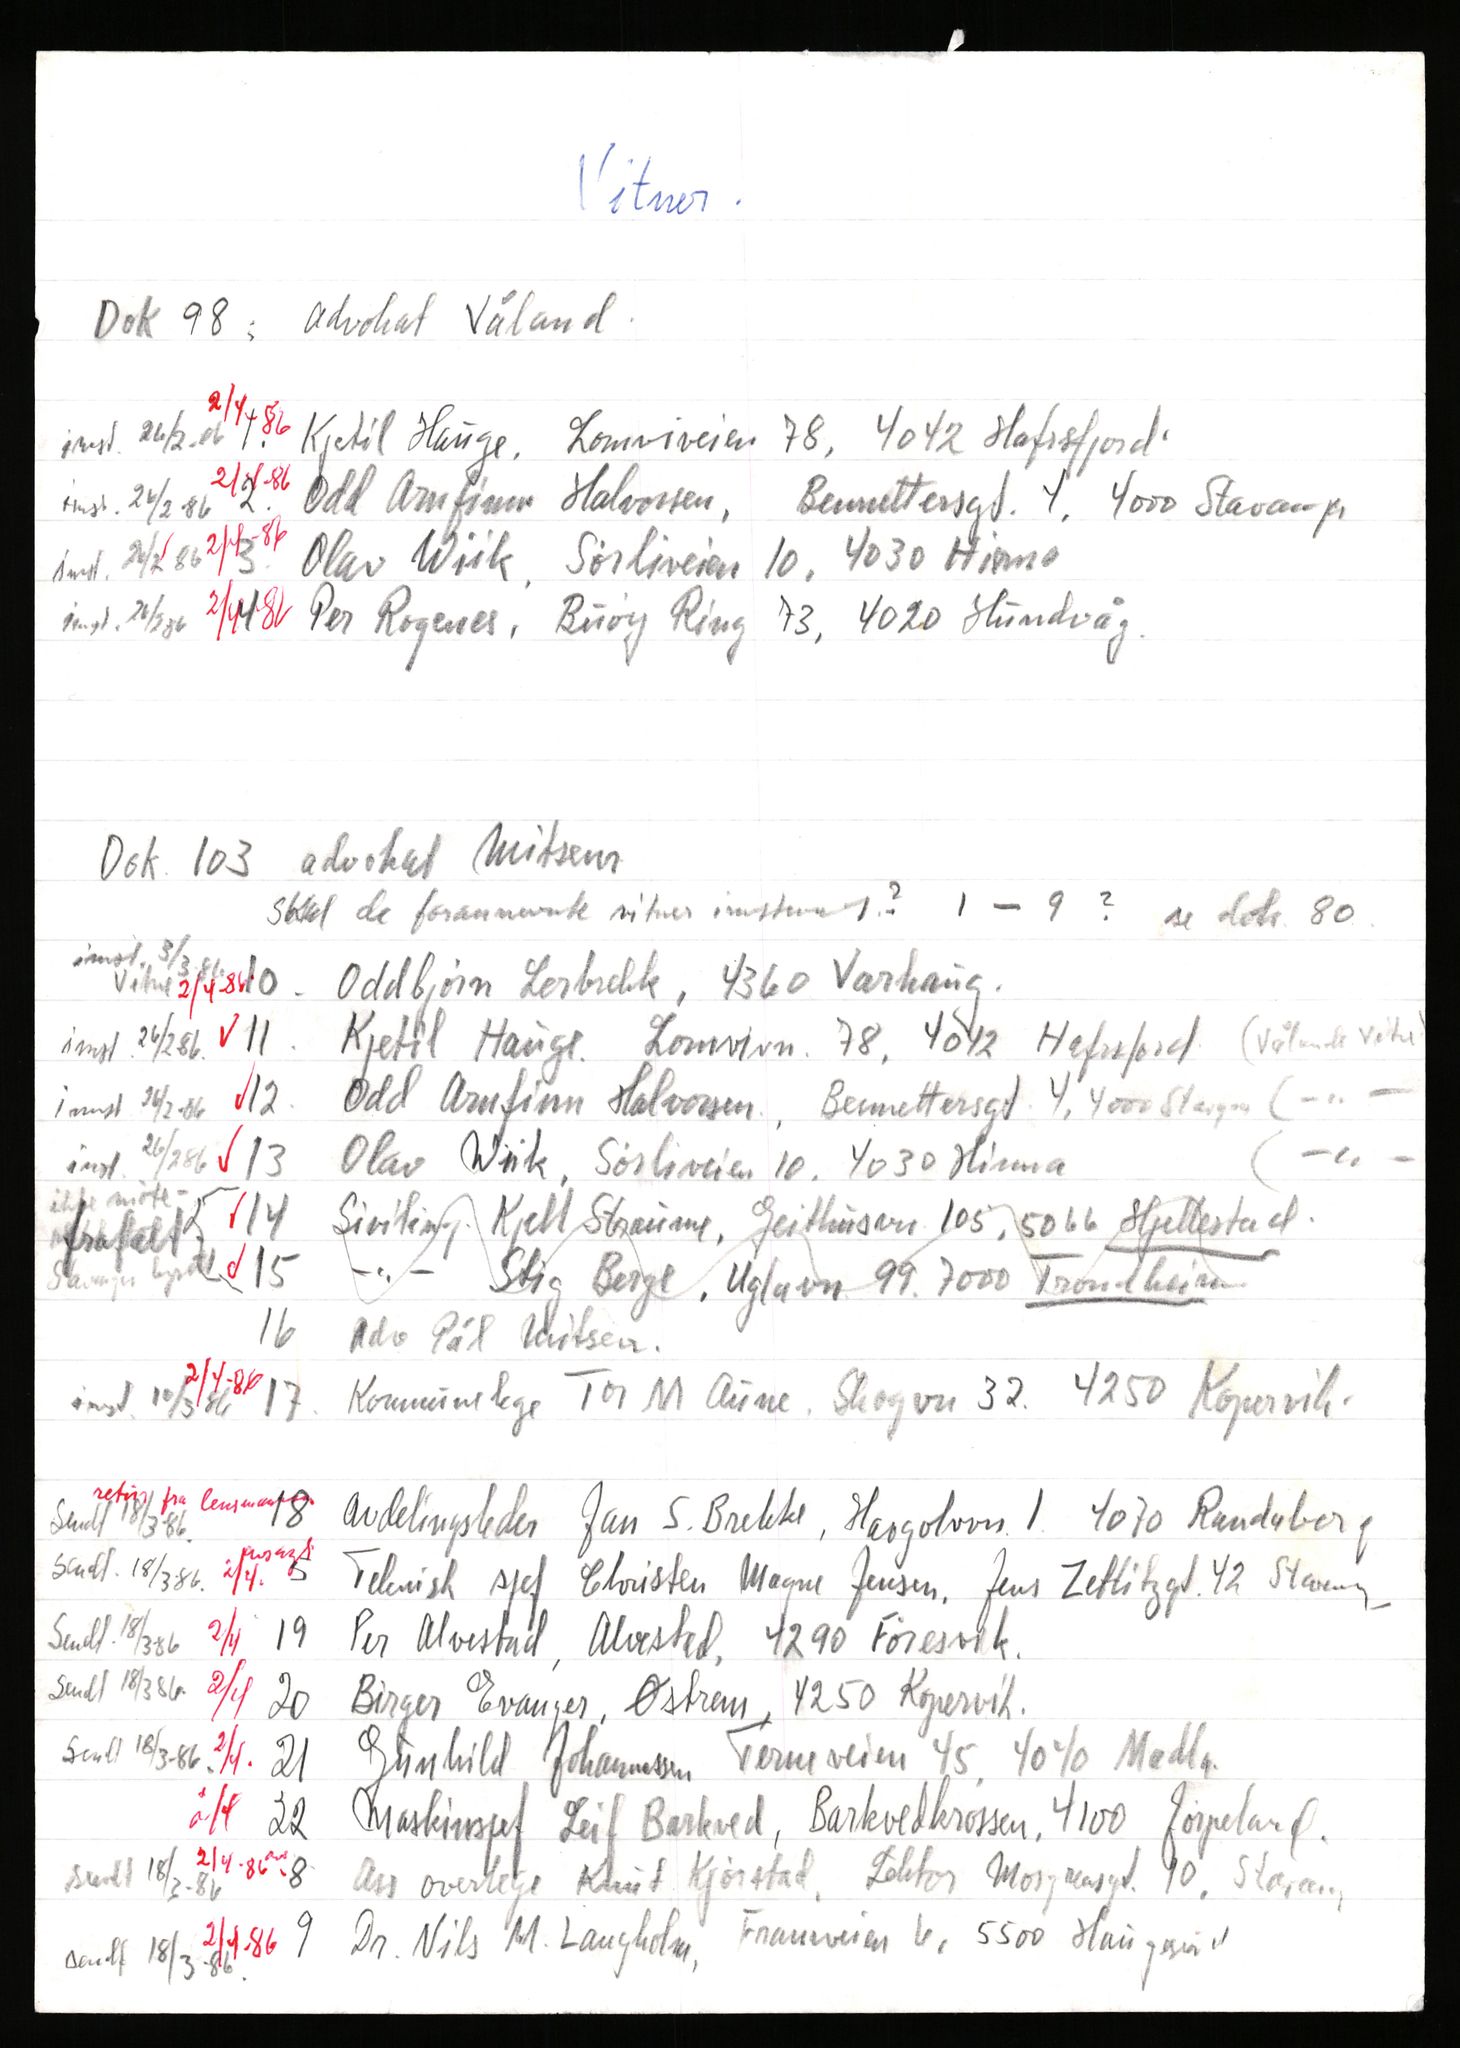 Vitner.
Dok 98; advokat Våland.
innst. 26/2-86 2/4-86 1. Kjetil Hauge, Lomviveien 78, 4042 Hafrsfjord.
innst. 26/2-86 2/4-86 2. Odd Arnfinn Halvorsen, Bennettersgt. 4, 4000 Stavanger
innst. 26/2 86 2/4-86 3. Olav Wiik, Sörliveien 10, 4030 Hinna
innst. 26/2 86 2/4-86 4 Per Rogenes, Buöy Ring 73, 4020 Hundvåg.
Dok. 103 advokat Mitsem
Skal de forannevnte vitner innstevnes? 1 - 9 ? se dok. 80
innst. 3/3-86.
Vitne 2/4-86 10. Oddbjörn Lerbrekk, 4360 Varhaug.
innst. 26/2 86. ✓ 11. Kjetil Hauge. Lomvivn. 78, 4042 Hafrsfjord (Vålands vitne)
innst 26/2-86 ✓ 12. Odd Arnfinn Halvorsen, Bennettersgt. 4, 4000 Stavgr (-"-
inst. 26/2 86 ✓ 13 Olav Wiik, Sörliveien 10, 4030 Hinna (-"-
ikke möte-
frafalt ✓ 14 Siviling. Kjell Straume, Geithusvn. 105, 5066 Hjellestad.
✓ 15 -"- Stig Berge, Uglavn 99. 7000 Trondheim
16 Adv Pål Mitsem.
innst. 10/3 86 2/4-86 17. Kommunelege Tor M Aune, Skogvn 32. 4250 Kopervik.
retur fra lensmannen
Sendt 18/3-86. 18 Avdelingsleder Jan S. Brekke, 1. 4070 Randaberg
Sendt. 18/3-86. 2/4. 5 Teknisk sjef Christen Magne Jensen, Jens Zetlitzgt. 42 Stavang
Sendt. 18/3-86 2/4 19 Per Alvestad, Alvestad, 4290 Föresvik.
Sendt 18/3 86. 2/4 20 Birger Evanger, Østrem, 4250 Kopervik.
Sendt 18/3-86. 2/4. 21 Gunhild Johannessen Terneveien 45, 4040 Madla.
2/4 22 Maskinsjef Leif Barkved, Barkvedkrossen, 4100 Jörpeland.
Sendt 18/3-86 2/4-86 8 Ass overlege Knut Kjörstad, Lektor 10, Stavang
Sendt 18/3-86. 2/4-86 9 Dr. Nils M. Langholm, Framveien 6, 5500 Haugesund